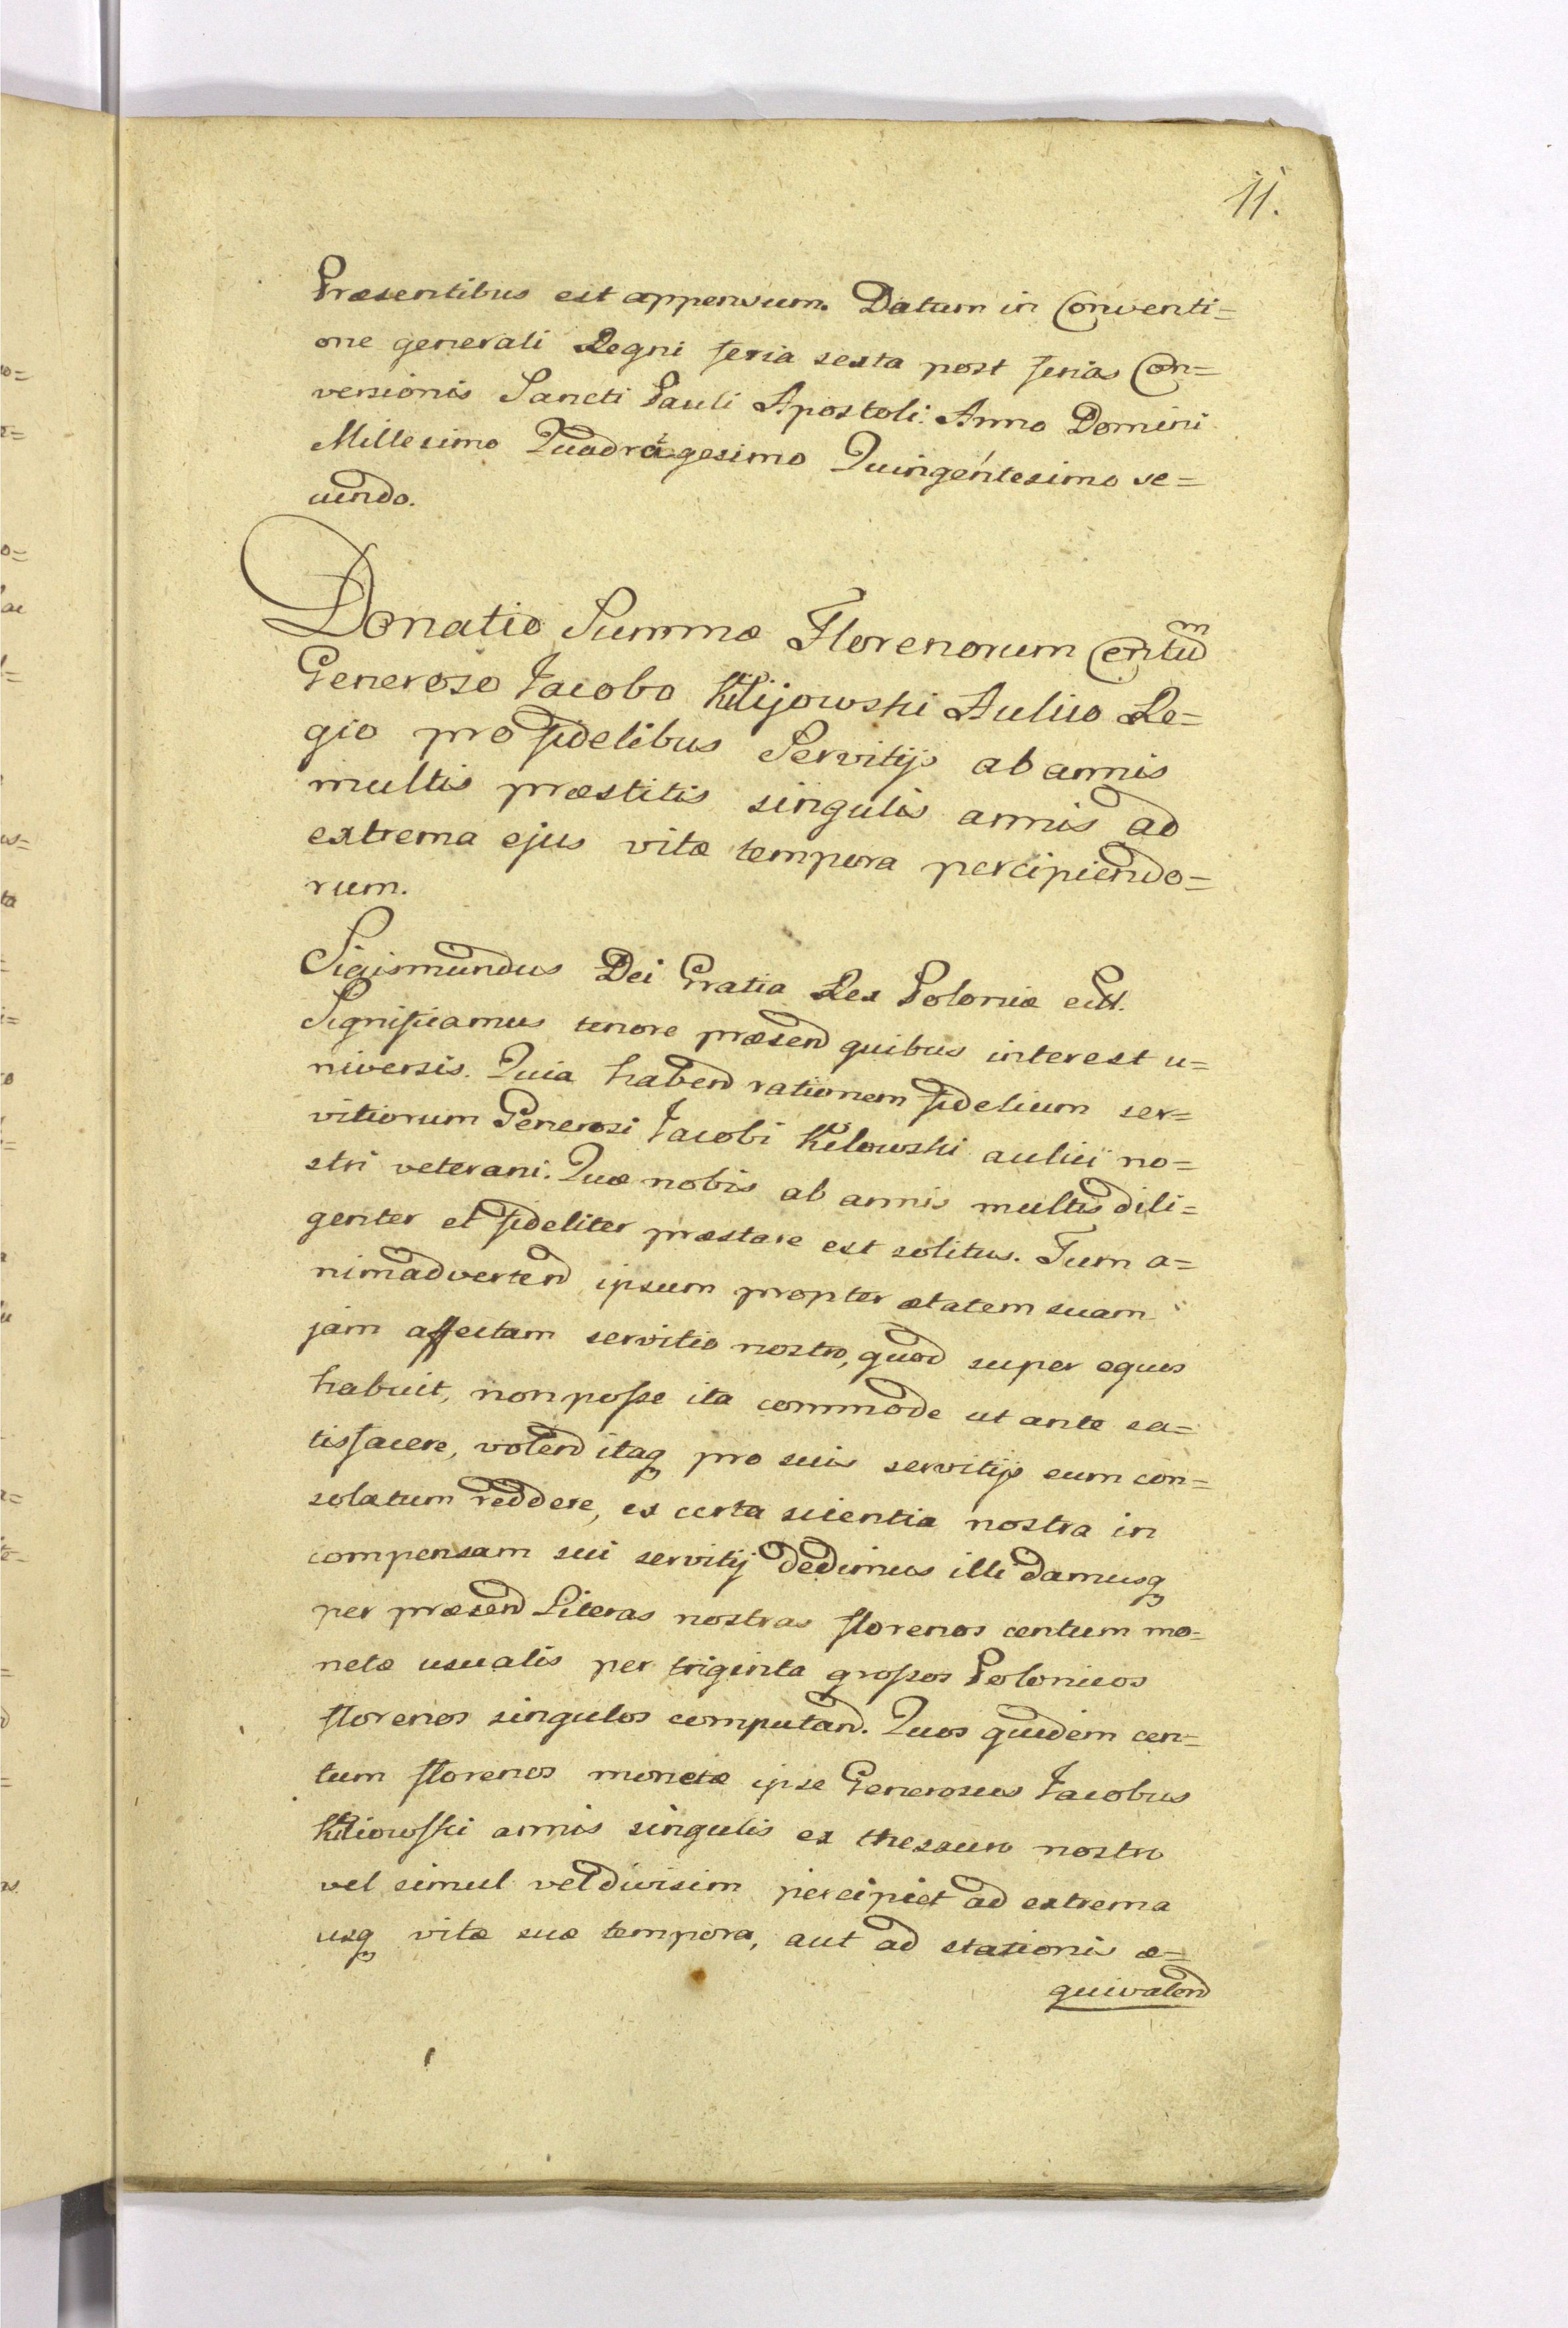 11.
Præsentibus est appensum. Datum in Conventi=
one generali Regni feria sexta post ferias Con=
versionis Sancti Pauli Apostoli. Anno Domini
Millesimo Quadragesimo Quingentesimo se=
cundo.
Donatio Summæ Florenorum Centum
Generoso Jacobo Kilijowski Aulico Re=
gio pro fidelibus Servitijs ab annis
multis præstitis singulis annis ad
extrema ejus vitæ tempora percipiendo=
rum.
Sigismundus Dei Gratia Rex Poloniæ ectt.
Significamus tenore præsend quibus interest u=
niversis. Quia habend rationem fidelium ser=
vitiorum Generosi Jacobi Kilowski aulici no=
stri veterani. Quæ nobis ab annis multis dili=
genter et fideliter præstare est solitus. Tum a=
nimadvertend ipsum propter ætatem suam
jam affectam servitio nostro, quod super equos
habuit, non posse ita commode ut ante sa=
tisfacere, volend itaq pro suis servitijs eum con=
solatum reddere, ex certa scientia nostra in
compensam sui servitij dedimus illi damusq
per præsend Literas nostras florenos centum mo=
netæ usualis per triginta grossos Polonicos
florenos singulos computand. Quos quidem cen=
tum florenos monetæ ipse Generosus Jacobus
Kiliowski annis singulis ex thesauro nostro
vel simul vel divisim percipiet ad extrema
usq vitæ suæ tempora, aut ad stationis æ=
quivalend